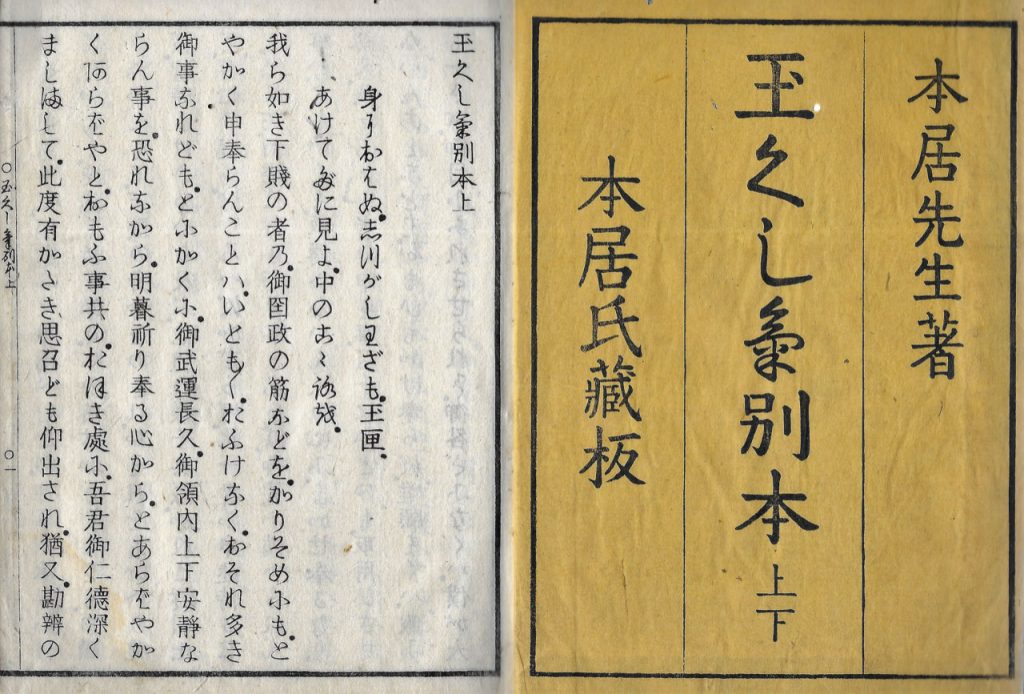 本居先生著
玉くし氣別本 上下
本居氏藏板
玉くし氣別本上
身におはぬ。志川がしわざも。玉匣。
あけてだに見よ。中のこゝろを。
我ら如き下賤の者乃。御囯政の筋などを。かりそめにも。と
やかく申奉らんことハ。いとも〱。おふけなく。おそれ多き
御事なれども。とにかくに。御武運長久。御領内上下安静な
らん事を。恐れながら。明暮祈り奉る心から。とあらばやか
くあらばやと。おもふ事共の。おほき處に。吾君御仁德深く
ましまして。此度有がたき。思召ども仰出され。猶又勘辨の
○玉くし氣別本上 ○一